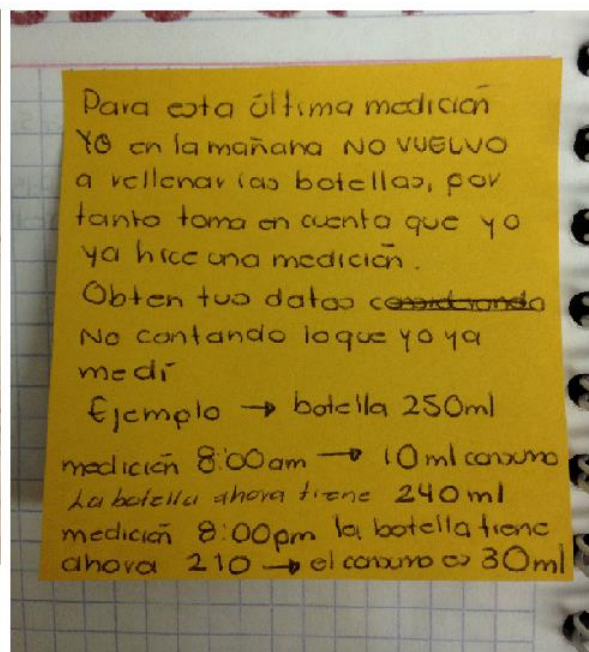 Para esta última medición
YO en la mañana NO VUELVO
a rellenar las botellas, por
tanto toma en cuenta que yo
ya hice una medición.
Obten tus datos considerando
No contando lo que yo ya
medí
Ejemplo → botella 250ml
medición 8:00am → 10ml consumo
La botella ahora tiene 240ml
medición 8:00pm la botella tiene
ahora 210 → el consumo es 30ml